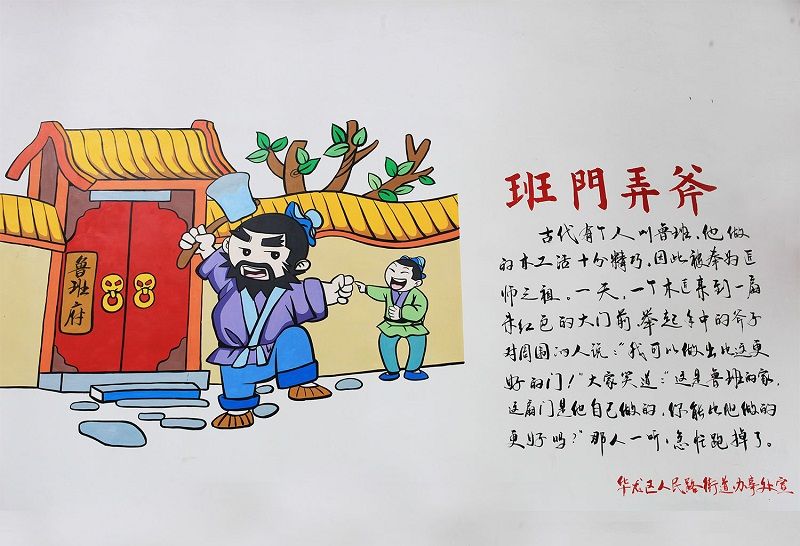 班門弄斧
古代有个人叫鲁班，他做
的木工活十分精巧，因此被奉为匠
师之祖。一天，一个木匠来到一扇
朱红色的大门前，举起手中的斧子
对周围的人说："我可以做出比这更
好的门！"大家笑道："这是鲁班的家，
这扇门是他自己做的，你能比他做的
更好吗？"那人一听，急忙跑掉了。
华龙区人民路街道办事处宣
鲁班府